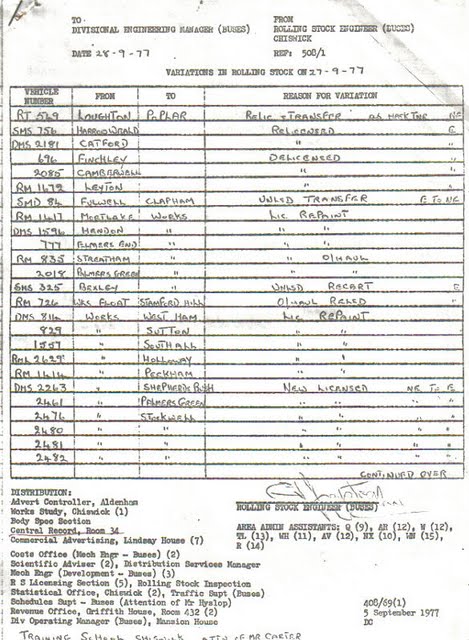 TO FROM
DIVISIONAL ENGINEERING MANAGER (BUSES) ROLLING STOCK ENGINEER (BUSES)
CHISWICK
DATE 28-9-77 REF: 508/1
VARIATIONS IN ROLLING STOCK ON 27-9-77
VEHICLE NUMBER FROM TO REASON FOR VARIATION
RT 549 LOUGHTON POPLAR RELIC & TRANSFER AS MECH TNR NE
SMS 756 HARROW WEALD RELICENSED E
DMS 2181 CATFORD " "
696 FINCHLEY DELICENSED "
2085 CAMBERWELL " "
RM 1672 LEYTON " "
SMD 84 FULWELL CLAPHAM UNLSD TRANSFER E TO NE
RM 1417 MORTLAKE WORKS LIC REPAINT
DMS 1596 HENDON " " "
777 ELMERS END " " "
RM 835 STREATHAM " " O/HAUL
2018 PALMERS GREEN " " "
SMS 325 BEXLEY " UNLSD RECERT E
RM 726 WKS FLOAT STAMFORD HILL O/HAUL RELSD
DMS 814 WORKS WEST HAM LIC REPAINT
829 " SUTTON " "
1557 " SOUTHALL " "
RML 2629 " HOLLOWAY " "
RM 1414 " PECKHAM " "
DMS 2263 " SHEPHERDS BUSH NEW LICENSED NE TO E
2461 " PALMERS GREEN " " "
2476 " STOCKWELL " " "
2480 " " " " "
2481 " " " " "
2482 " " " " "
CONTINUED OVER
DISTRIBUTION:
Advert Controller, Aldenham ROLLING STOCK ENGINEER (BUSES)
Works Study, Chiswick (1)
Body Spec Section AREA ADMIN ASSISTANTS: Q (9), AR (12), W (12),
Central Record, Room 34 TL (13), WH (11), AV (12), HX (10), WN (15),
Commercial Advertising, Lindsay House (7) R (14)
Costs Office (Mech Engr - Buses) (2)
Scientific Adviser (2), Distribution Services Manager
Mech Engr (Development - Buses) (3)
R S Licensing Section (5), Rolling Stock Inspection
Statistical Office, Chiswick (2), Traffic Supt (Buses)
Schedules Supt - Buses (Attention of Mr Hyslop) 408/69(1)
Revenue Office, Griffith House, Room 432 (2) 5 September 1977
Div Operating Manager (Buses), Mansion House DC
TRAINING SCHOOL CHISWICK ATTN OF MR CARTER